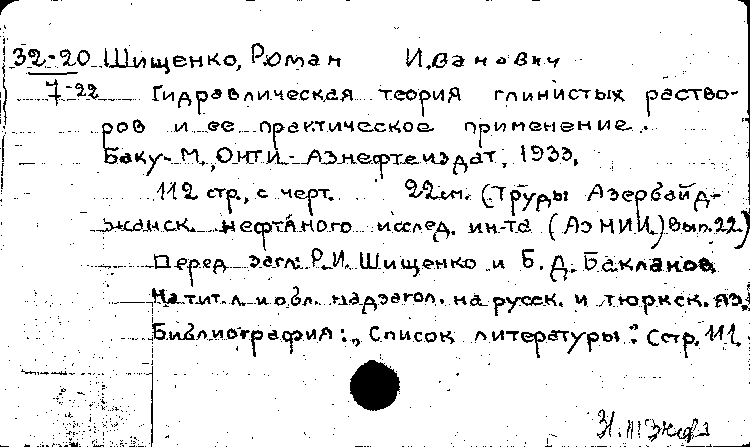 32-20 Шищенко, Роман Иванович
7-22 Гидравлическая теория глинистых раство-
ров и ее практическое применение.
Баку-М., ОНТИ - Азнефтеиздат, 1933,
112 стр., с черт. 22 см. (Труды Азербайд-
жанск. нефтяного исслед. ин-та (АзНИИ.) Вып. 22.)
Перед загл: Р.И. Шищенко и Б.Д. Бакланов
На тит. л. и обл. надзагол. на русск. и тюркск. яз.
Библиография: „Список литературы". Сстр. 111.